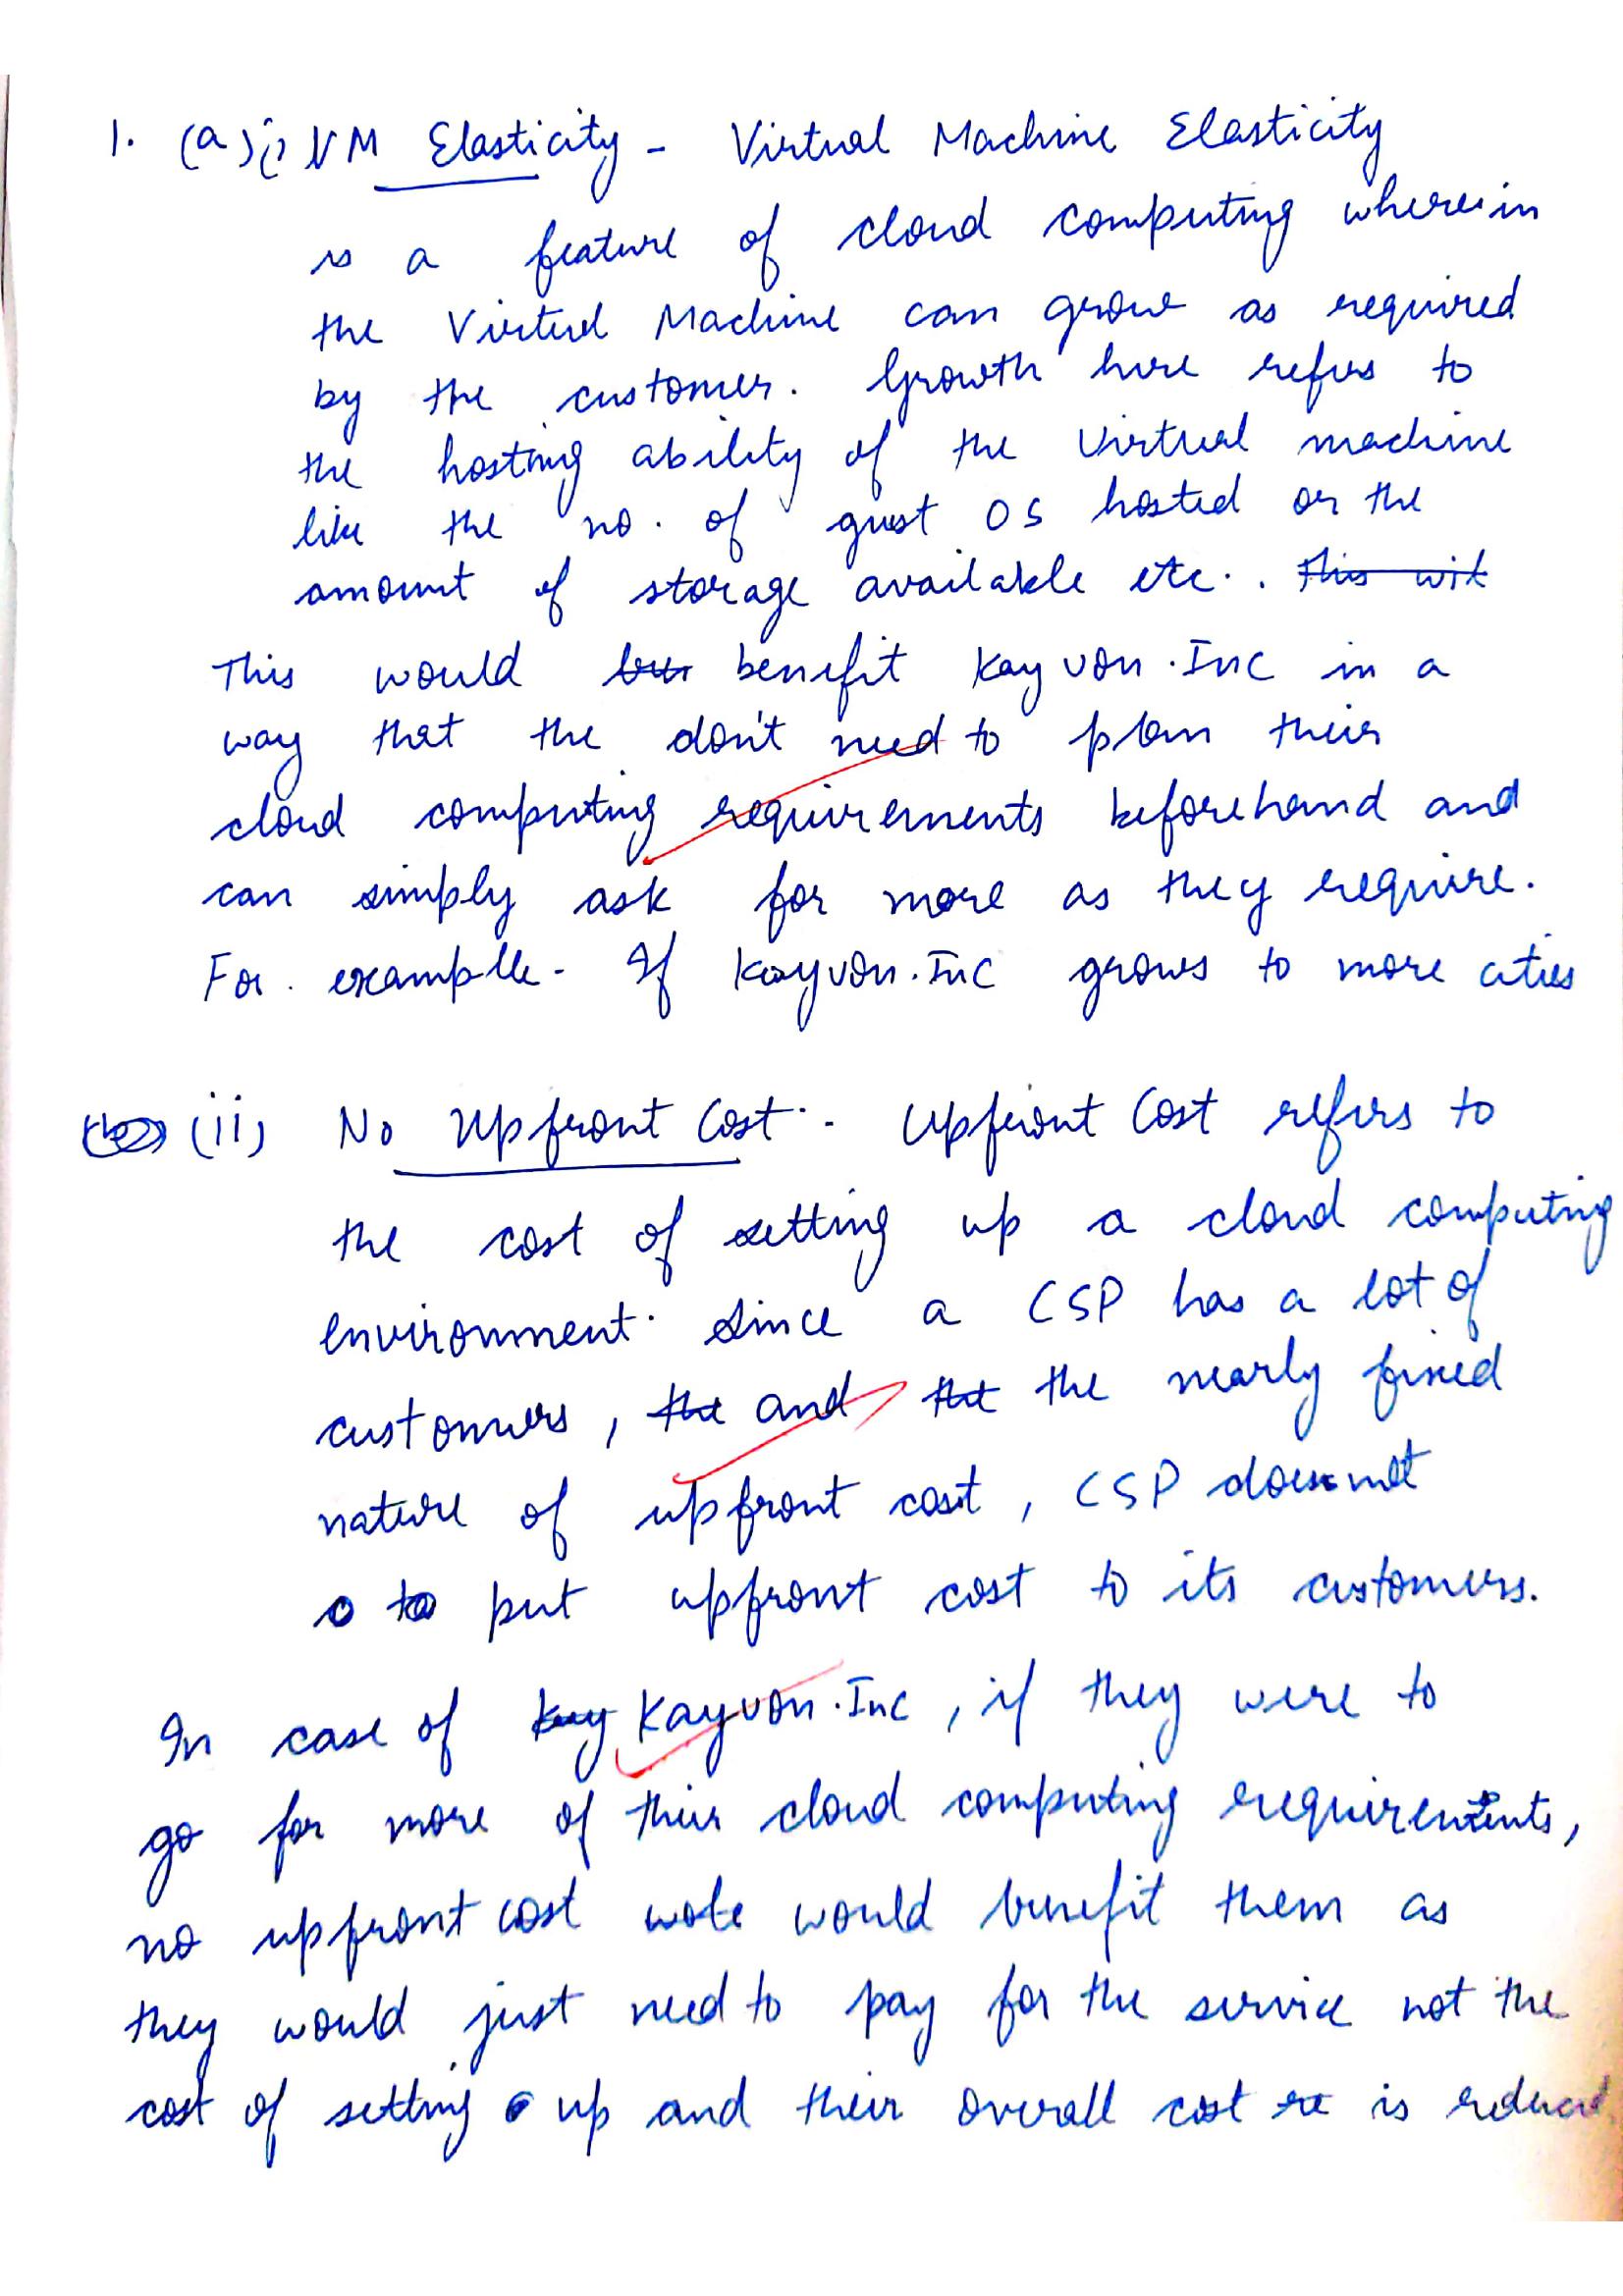 1. (a) i) VM Elasticity - Virtual Machine Elasticity
is a feature of cloud computing wherein
the Virtual Machine can grow as required
by the customer. Growth here refers to
the hosting ability of the Virtual machine
like the no. of guest OS hosted or the
amount of storage available etc.. This wit
This would benefit Kayvon.Inc in a
way that the don't need to plan their
cloud computing requirements beforehand and
can simply ask for more as they require.
For example - If Kayvon.Inc grows to more cities
(ii) No Upfront Cost - Upfront Cost refers to
the cost of setting up a cloud computing
environment. Since a CSP has a lot of
customers, the and that the nearly fixed
nature of upfront cost, CSP does not
to put upfront cost to its customers.
In case of Kay Kayvon.Inc, if they were to
go for more of their cloud computing requirements,
no upfront cost would benefit them as
they would just need to pay for the service not the
cost of setting up and their overall cost re is reduced.